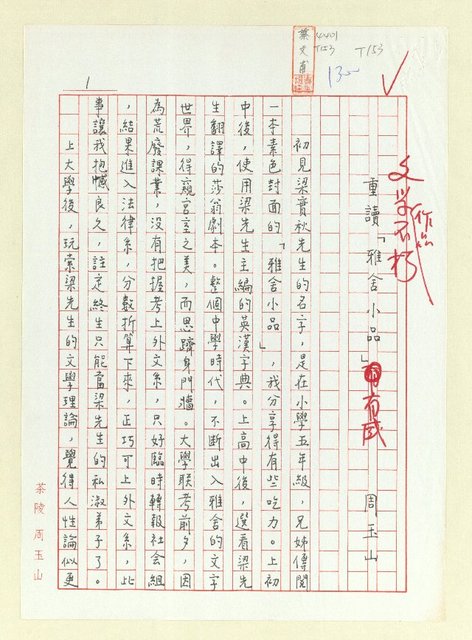 蔡文甫
T153
T153
1
重讀「雅舍小品」有感
文学不朽
周玉山
初見梁實秋先生的名字，是在小學五年級，兄姊傳閱
一本素色封面的「雅舍小品」，我分享得有些吃力。上初
中後，使用梁先生主編的英漢字典。上高中後，選看梁先
生翻譯的莎翁劇本。整個中學時代，不斷出入雅舍的文字
世界，得窺宮室之美，而思躋身門牆。大學聯考前夕，因
為荒廢課業，沒有把握考上外文系，只好臨時轉報社會組
，結果進入法律系，分數折算下來，正巧可上外文系，此
事讓我抱憾良久，註定終生只能當梁先生的私淑弟子了。
上大學後，玩索梁先生的文學理論，覺得人性論似更
茶陵 周玉山